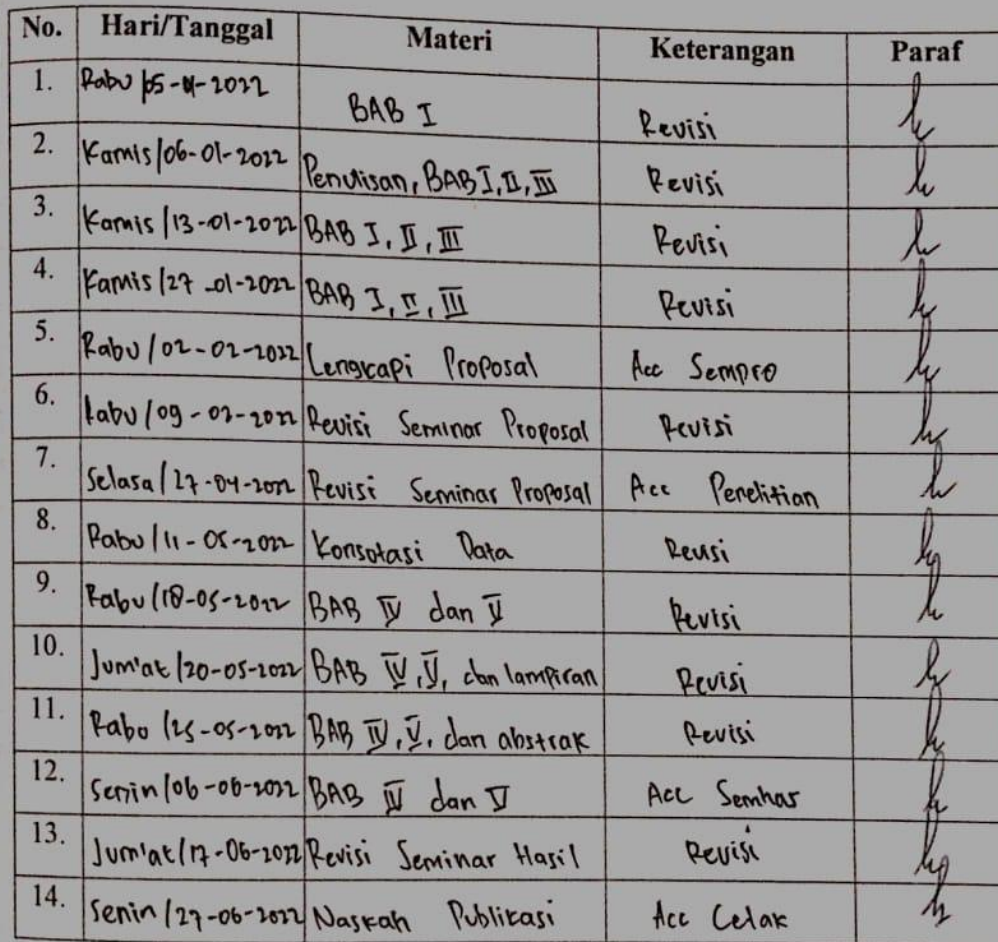 No. Hari/Tanggal Materi Keterangan Paraf
1. Rabu/05-01-2022 BAB I Revisi
2. Kamis/06-01-2022 Penulisan, BAB I, II, III Revisi
3. Kamis/13-01-2022 BAB I, II, III Revisi
4. Kamis/27-01-2022 BAB I, II, III Revisi
5. Rabu/02-02-2022 Lengkapi Proposal Acc Sempro
6. Rabu/09-02-2022 Revisi Seminar Proposal Revisi
7. Selasa/27-04-2022 Revisi Seminar Proposal Acc Penelitian
8. Rabu/11-05-2022 Data Revisi
9. Rabu/18-05-2022 BAB IV dan V Revisi
10. Jum'at/20-05-2022 BAB IV, V, dan lampiran Revisi
11. Rabu/25-05-2022 BAB IV, V, dan abstrak Revisi
12. Senin/06-06-2022 BAB IV dan V Acc Semhas
13. Jum'at/17-06-2022 Revisi Seminar Hasil Revisi
14. Senin/27-06-2022 Naskah Publikasi Acc Cetak